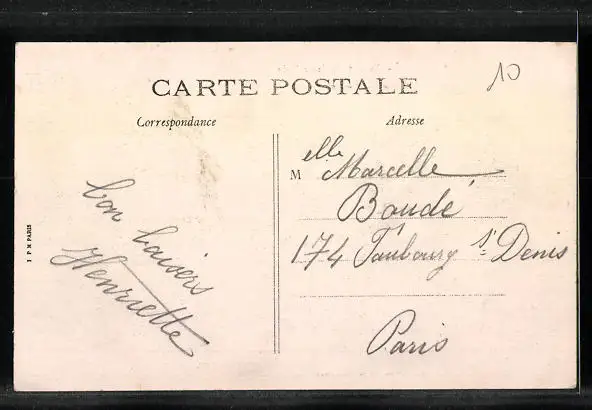 CARTE POSTALE
10
Correspondance
Adresse
Melle Marcelle
Boudé
174 Faubourg St Denis
Paris
bon baisers
Henriette
I P M PARIS